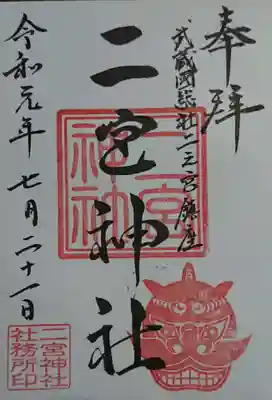 奉拝
武蔵国総社二之宮鎮座
二宮神社
二宮神社
令和元年七月二十一日
二宮神社
社務所印